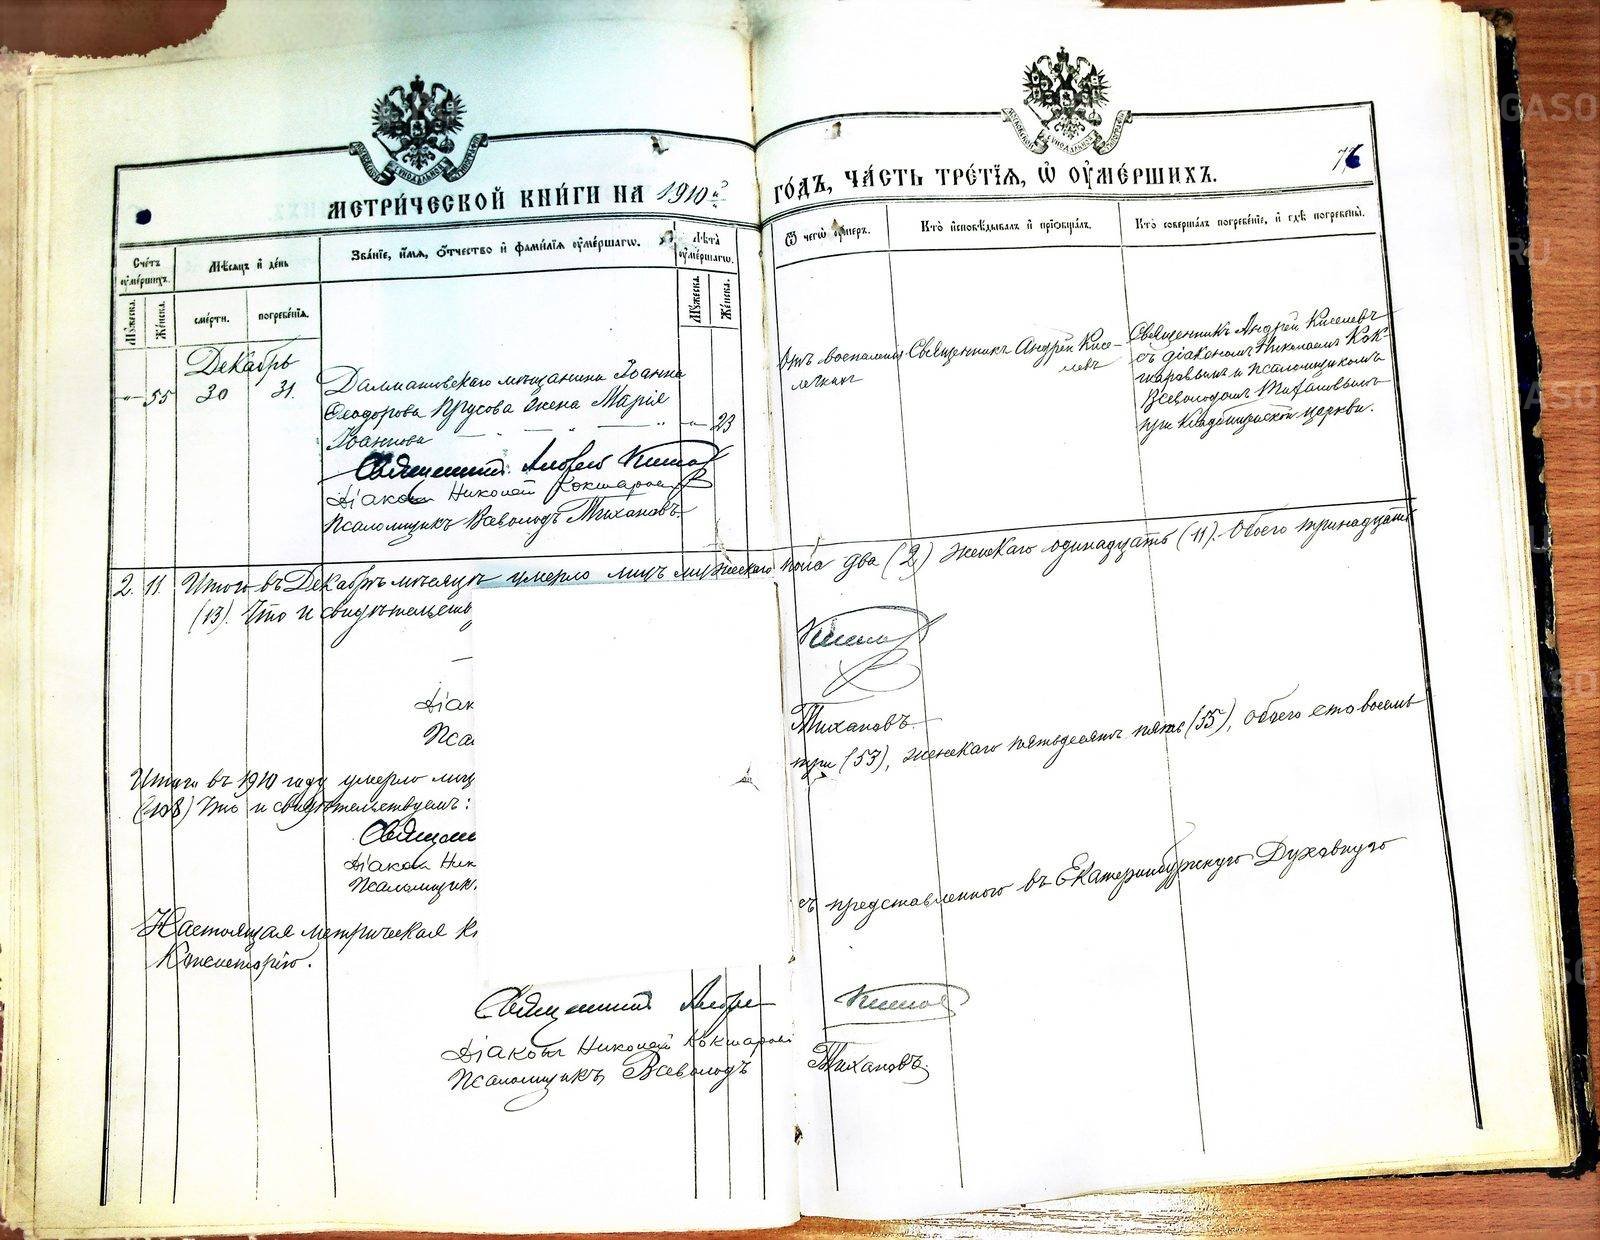 МЕТРИ́ЧЕСКОЙ КНИ́ГИ НА 1910й ГО́ДЪ, ЧА́СТЬ ТРЕ́ТІЯ, Ѿ ОУ҆МЕ́РШИХЪ.
Счетъ оумершихъ.
Мѣсяцъ и день
Званіе, имя, отчество и фамилія оумершагѡ.
Лѣта оумершагѡ.
Ѿ чегѡ оумеръ.
Кто исповѣдывалъ и пріобщалъ.
Кто совершалъ погребеніе, и гдѣ погребены.
Мꙋжеска. Женска. смерти. погребенія. Мꙋжеска. Женска.
Декабрь
"– 55 30 31.
Далматовскаго мѣщанина Іоанна
Ѳеодорова Прусова жена Марія
Іоаннова "– 23
Отъ воспаленія
легкихъ
Священникъ Андрей Кисе-
левъ
Священникъ Андрей Киселевъ
съ діакономъ Николаемъ Кок-
шаровымъ и псаломщикомъ
Всеволодомъ Тихановымъ
при Кладбищенской церкви.
Священникъ Андрей Киселевъ
Діаконъ Николай Кокшаровъ
Псаломщикъ Всеволодъ Тихановъ.
2. 11. Итого въ Декабрѣ мѣсяцѣ умерло лицъ мужескаго пола два (2) женскаго одинадцать (11). Обоего тринадцать
(13). Что и свидѣтельств
Киселевъ
Діак
Пса Тихановъ.
Итого въ 1910 году умерло лиц три (53), женскаго пятьдесятъ пять (55), обоего сто восемь
(108) Что и свидѣтельствуемъ:
Священ
Діаконъ Ник
Псаломщик
Настоящая метрическая к съ представленного въ Екатеринбургскую Духовную
Консисторію.
Священникъ Андре Киселевъ
Діаконъ Николай Кокшаровъ
Псаломщикъ Всеволодъ Тихановъ.